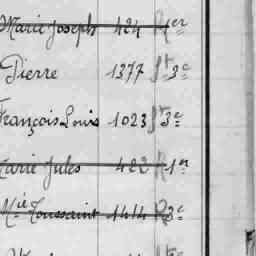 Marie Joseph 424 R 1er
Pierre 1377 St 3e
François Louis 1023 St 3e
Marie Jules 422 R 1er
Mie Toussaint 1414 R 3e